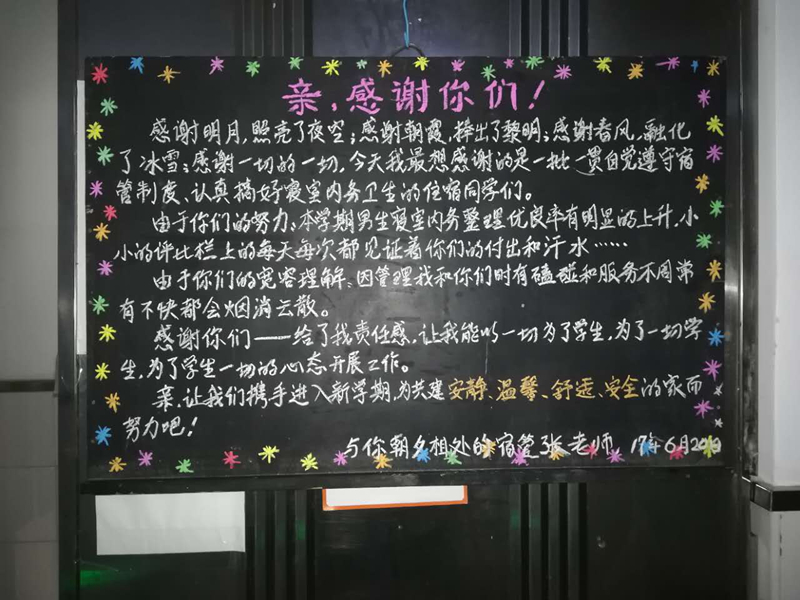 亲，感谢你们！
感谢明月，照亮了夜空；感谢朝霞，捧出了黎明；感谢春风，融化
了冰雪；感谢一切的一切，今天我最想感谢的是一批一贯自觉遵守宿
管制度、认真搞好寝室内务卫生的住宿同学们。
由于你们的努力、本学期男生寝室内务整理优良率有明显的上升，小
小的评比栏上的每天每次都见证着你们的付出和汗水……
由于你们的宽容理解、因管理我和你们时有磕碰和服务不周常
有不快都会烟消云散。
感谢你们——给了我责任感，让我能以一切为了学生，为了一切学
生，为了学生一切的心态开展工作。
亲，让我们携手进入新学期，为共建安静、温馨、舒适、安全的家而
努力吧！
与你朝夕相处的宿管张老师 17年6月20日